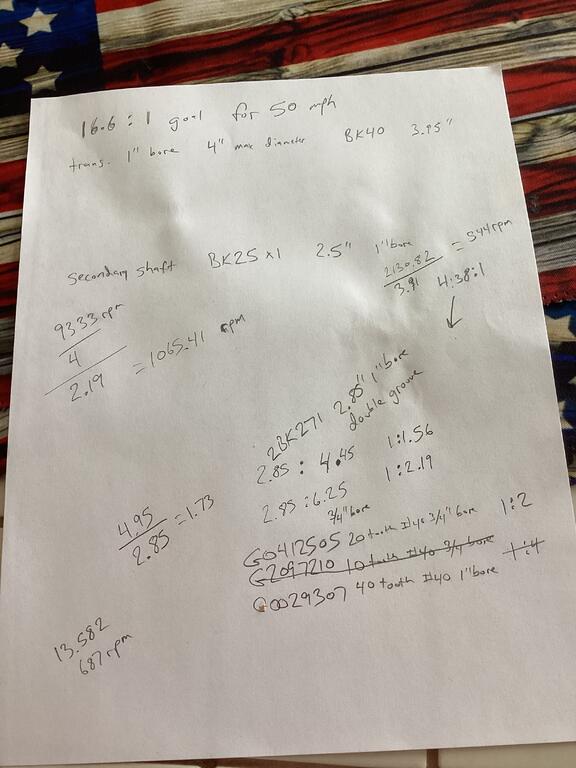 16.6 : 1 goal for 50 mph
trans. 1" bore 4" max diameter BK40 3.95"
Secondary shaft BK25 x1 2.5" 1" bore
2130.82 / 3.91 = 544 rpm
4:38:1
9333 rpm / 4 / 2.19 = 1065.41 rpm
2BK271 2.85" 1" bore
double groove
2.85 : 4.45 1:1.56
2.85 : 6.25 1:2.19
3/4" bore
4.95 / 2.85 = 1.73
G0412505 20 tooth #40 3/4" bore 1:2
G2097210 10 tooth #40 3/4 bore 1:4
G0029307 40 tooth #40 1" bore
13.582
687 rpm